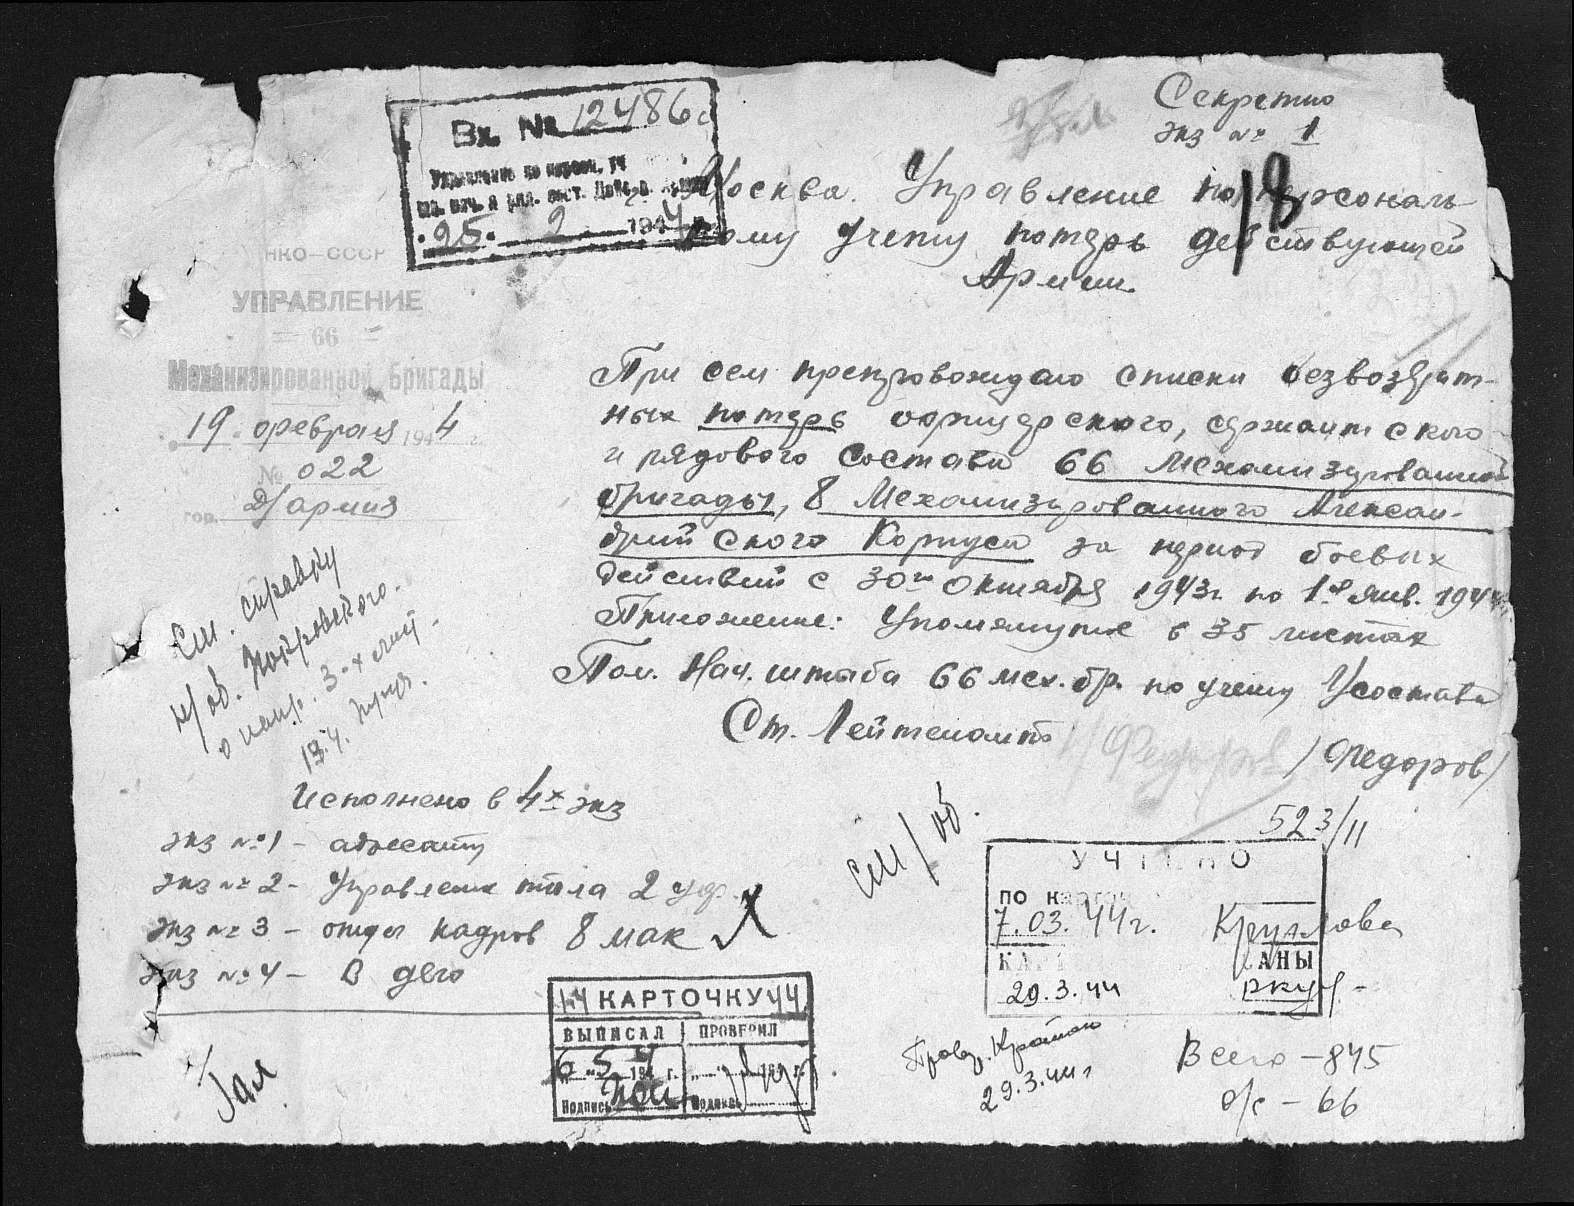 Секретно
экз № 1
Вх. № 12486с
Управление по персон. уч
25. 2 1944 г.
18
Москва. Управление по персональ-
ному учету потерь действующей
Армии.
НКО–СССР
УПРАВЛЕНИЕ
66
Механизированной Бригады
19 февраля 1944 г.
№ 022
гор. Д/армия
При сем препровождаю списки безвозврат-
ных потерь офицерского, сержантского
и рядового состава 66 Механизированной
бригады, 8 Механизированного Алексан-
дрийского Корпуса за период боевых
действий с 30го Октября 1943г. по 1е янв. 1944г.
Приложение: Упомянутое в 35 листах
Пом. Нач. штаба 66 мех. бр. по учету У/состава
Ст. Лейтенант
/Федоров/
см. справку
н/об. Покровского.
Исполнено в 4х экз
экз №1 – адресату
экз № 2 – Управление тыла 2 Уф.
экз № 3 – отдел кадров 8 мак
экз № 4 – В дело
см/об.
523/11
УЧТЕНО
ПО КАРТОЧ
7.03.44г. Круглова
КАРТ САНЫ
29.3.44
14 КАРТОЧКУ 44
ВЫПИСАЛ ПРОВЕРИЛ
6 5 194 г. 194 г.
Подпись Подпись
Пров.
29.3.44г
Всего – 845
о/с – 66